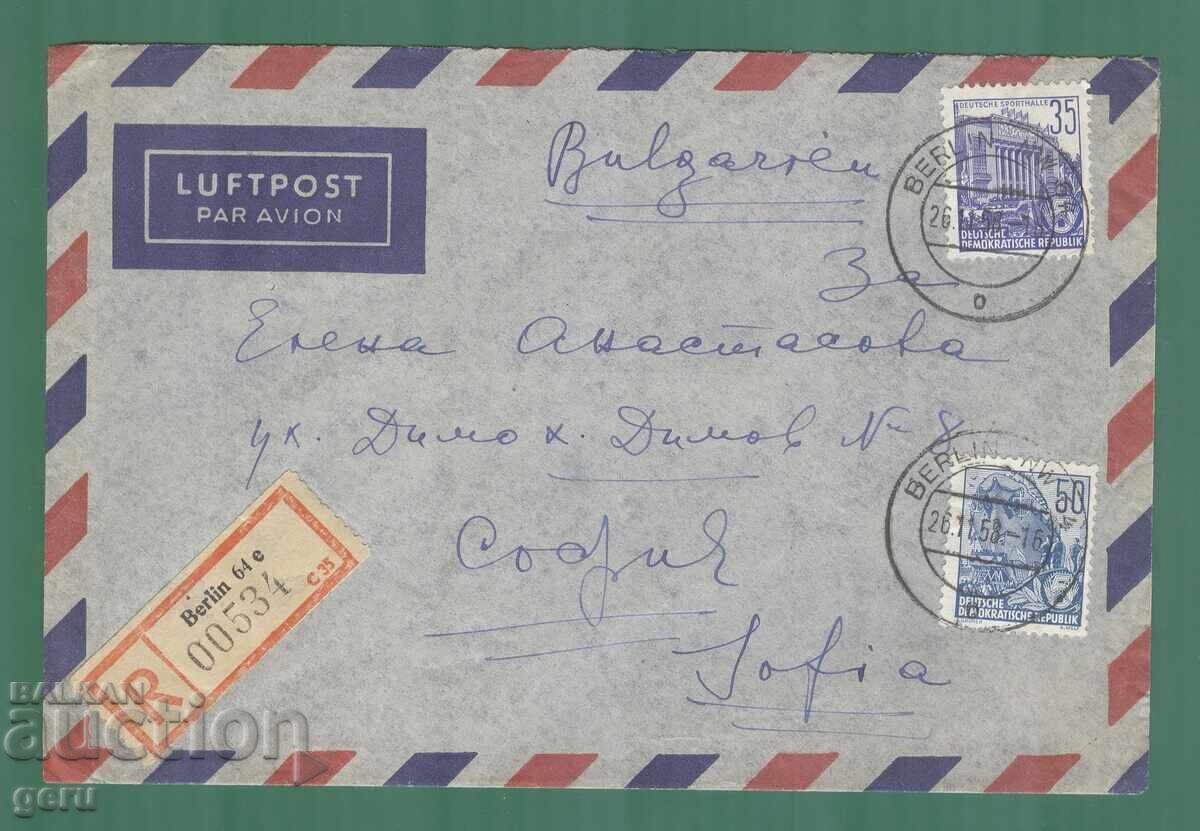 DEUTSCHE SPORTHALLE
35
DEUTSCHE
DEMOKRATISCHE REPUBLIK
BERLIN NW
LUFTPOST
PAR AVION
Bulgarien
За
Елена Анастасова
ул. Димо х. Димов № 8
50
DEUTSCHE
DEMOKRATISCHE REPUBLIK
BERLIN NW
26.11.58.-16
София
Sofia
R
Berlin 64 e
00534
C 35
BALKAN
auction
geru